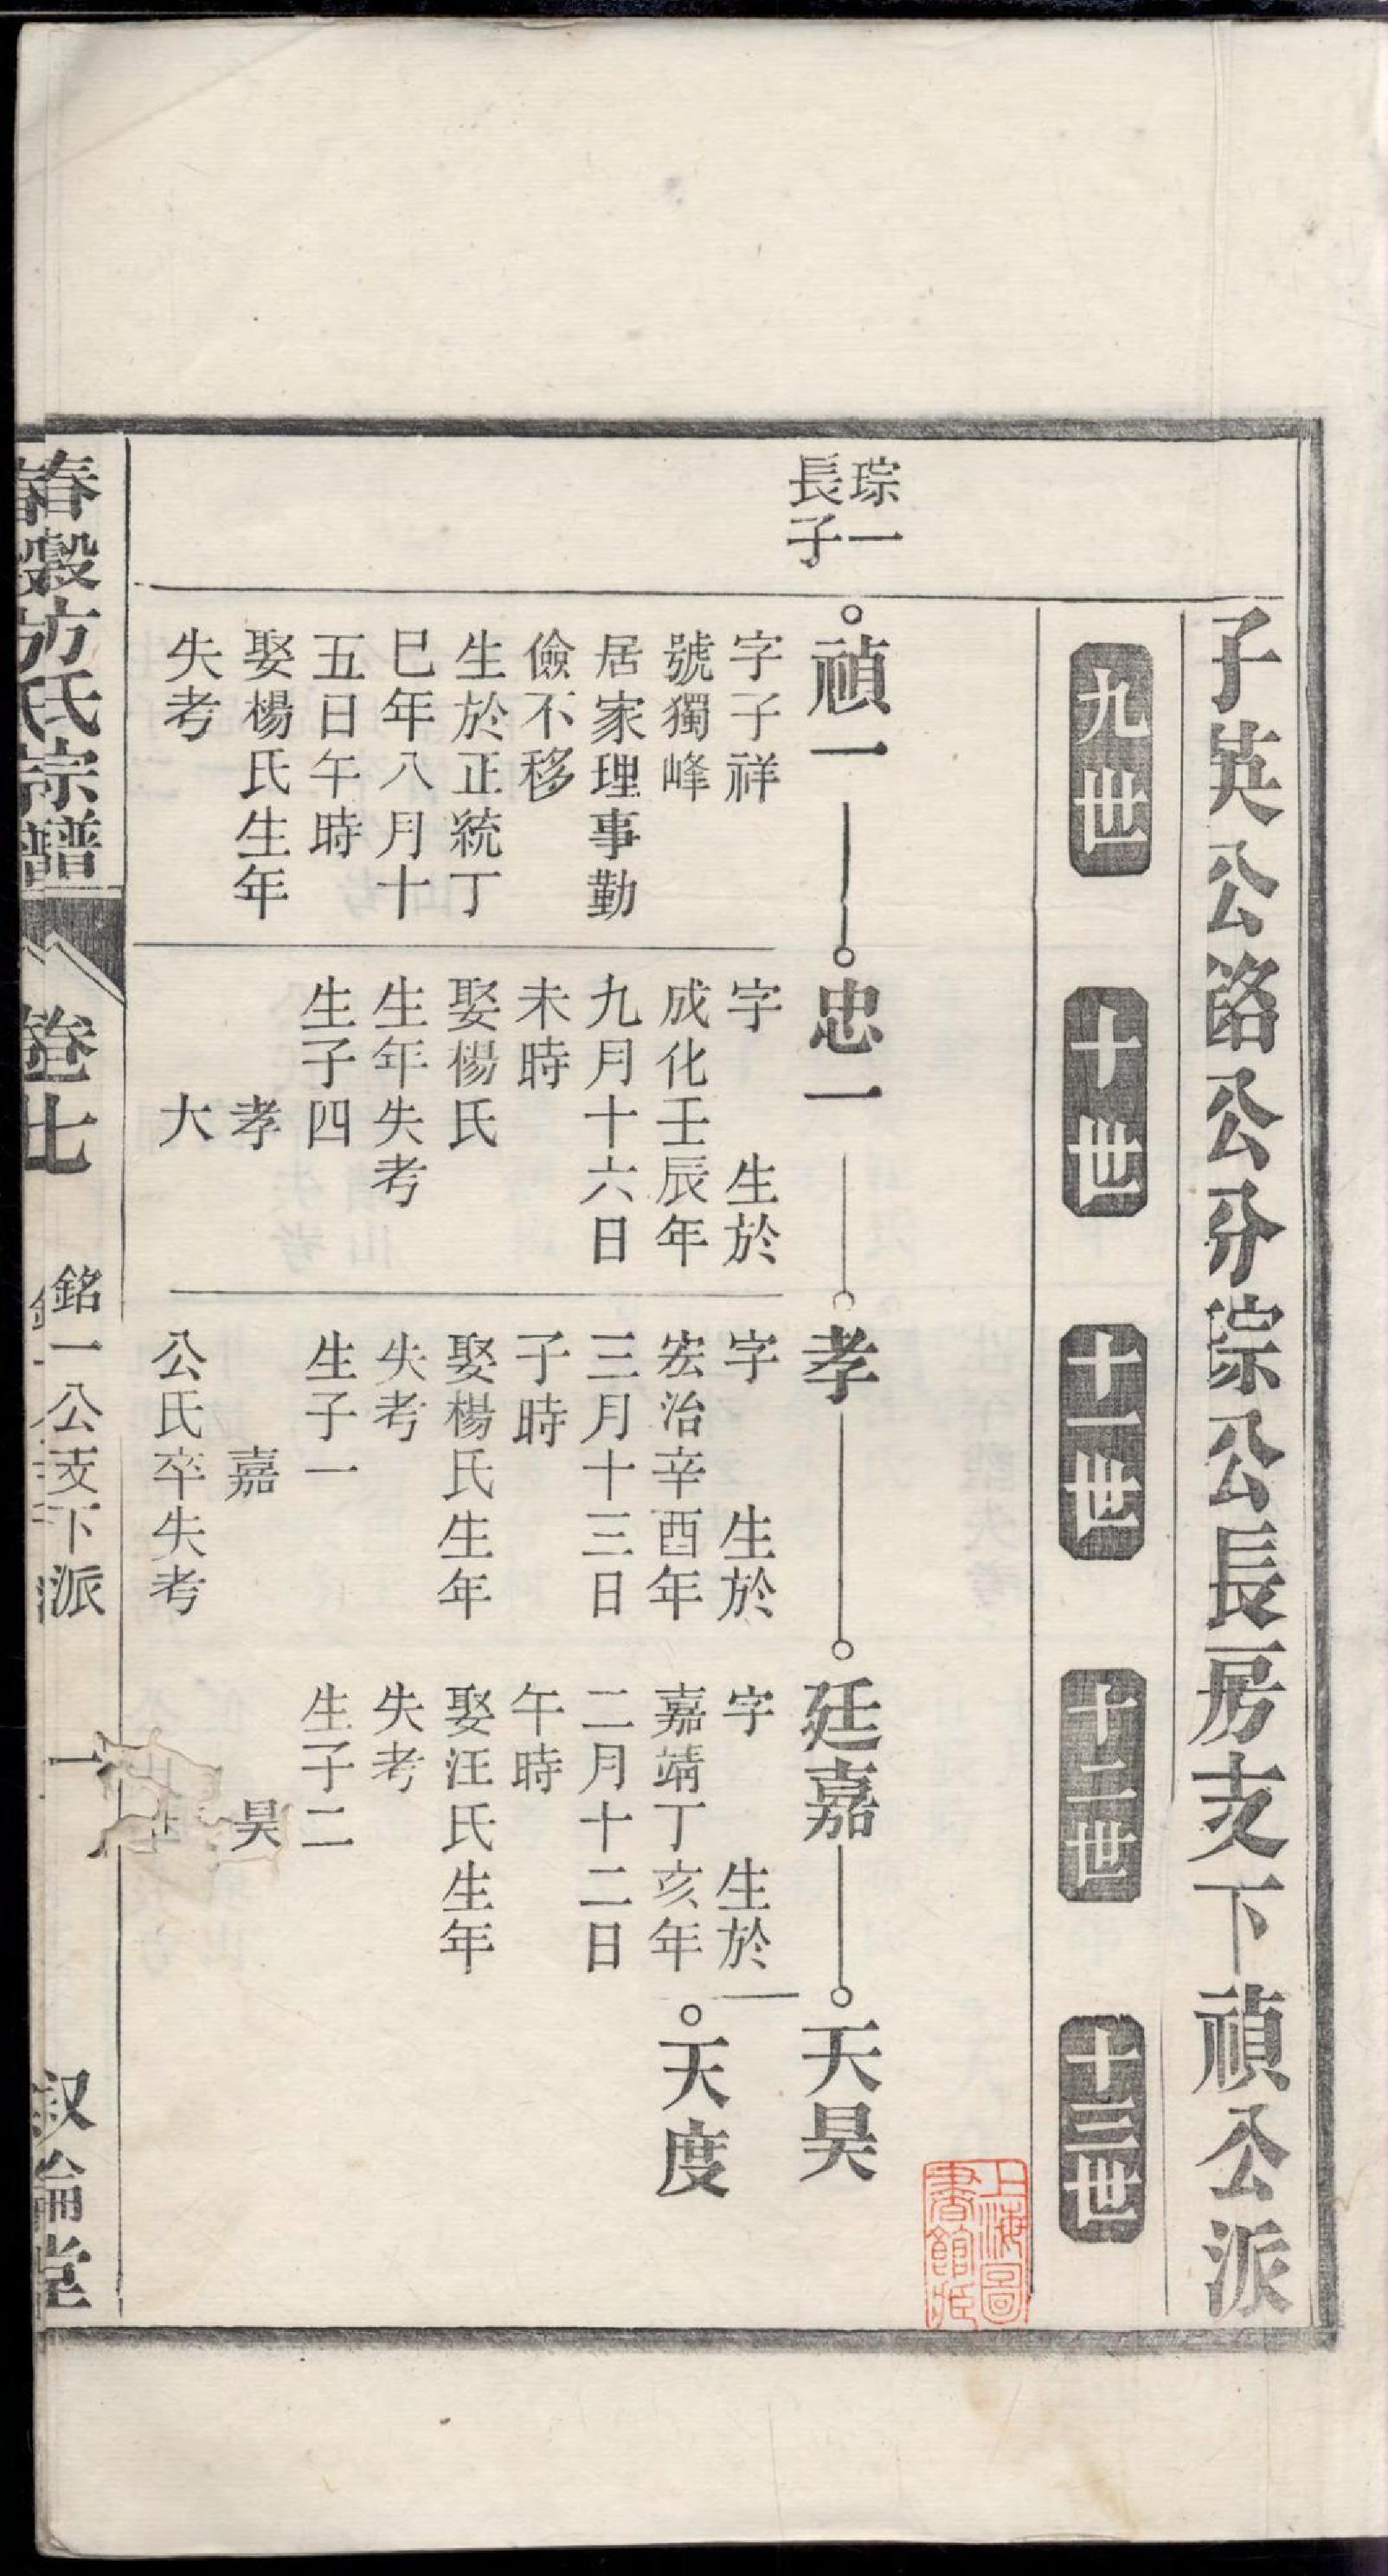 子英公銘公分琮公長房支下禎公派
九世
十世
十一世
十二世
十三世
琮一
長子
禎一
字子祥
號獨峰
居家理事勤
儉不移
生於正統丁
巳年八月十
五日午時
娶楊氏生年
失考
忠一
字 生於
成化壬辰年
九月十六日
未時
娶楊氏
生年失考
生子四
孝
大
孝
字 生於
宏治辛酉年
三月十三日
子時
娶楊氏生年
失考
生子一
嘉
公氏卒失考
廷嘉
字 生於
嘉靖丁亥年
二月十二日
午時
娶汪氏生年
失考
生子二
昊
天昊
天度
上海圖
書館藏
春穀方氏宗譜
卷七
銘一公支下派
一
叙倫堂